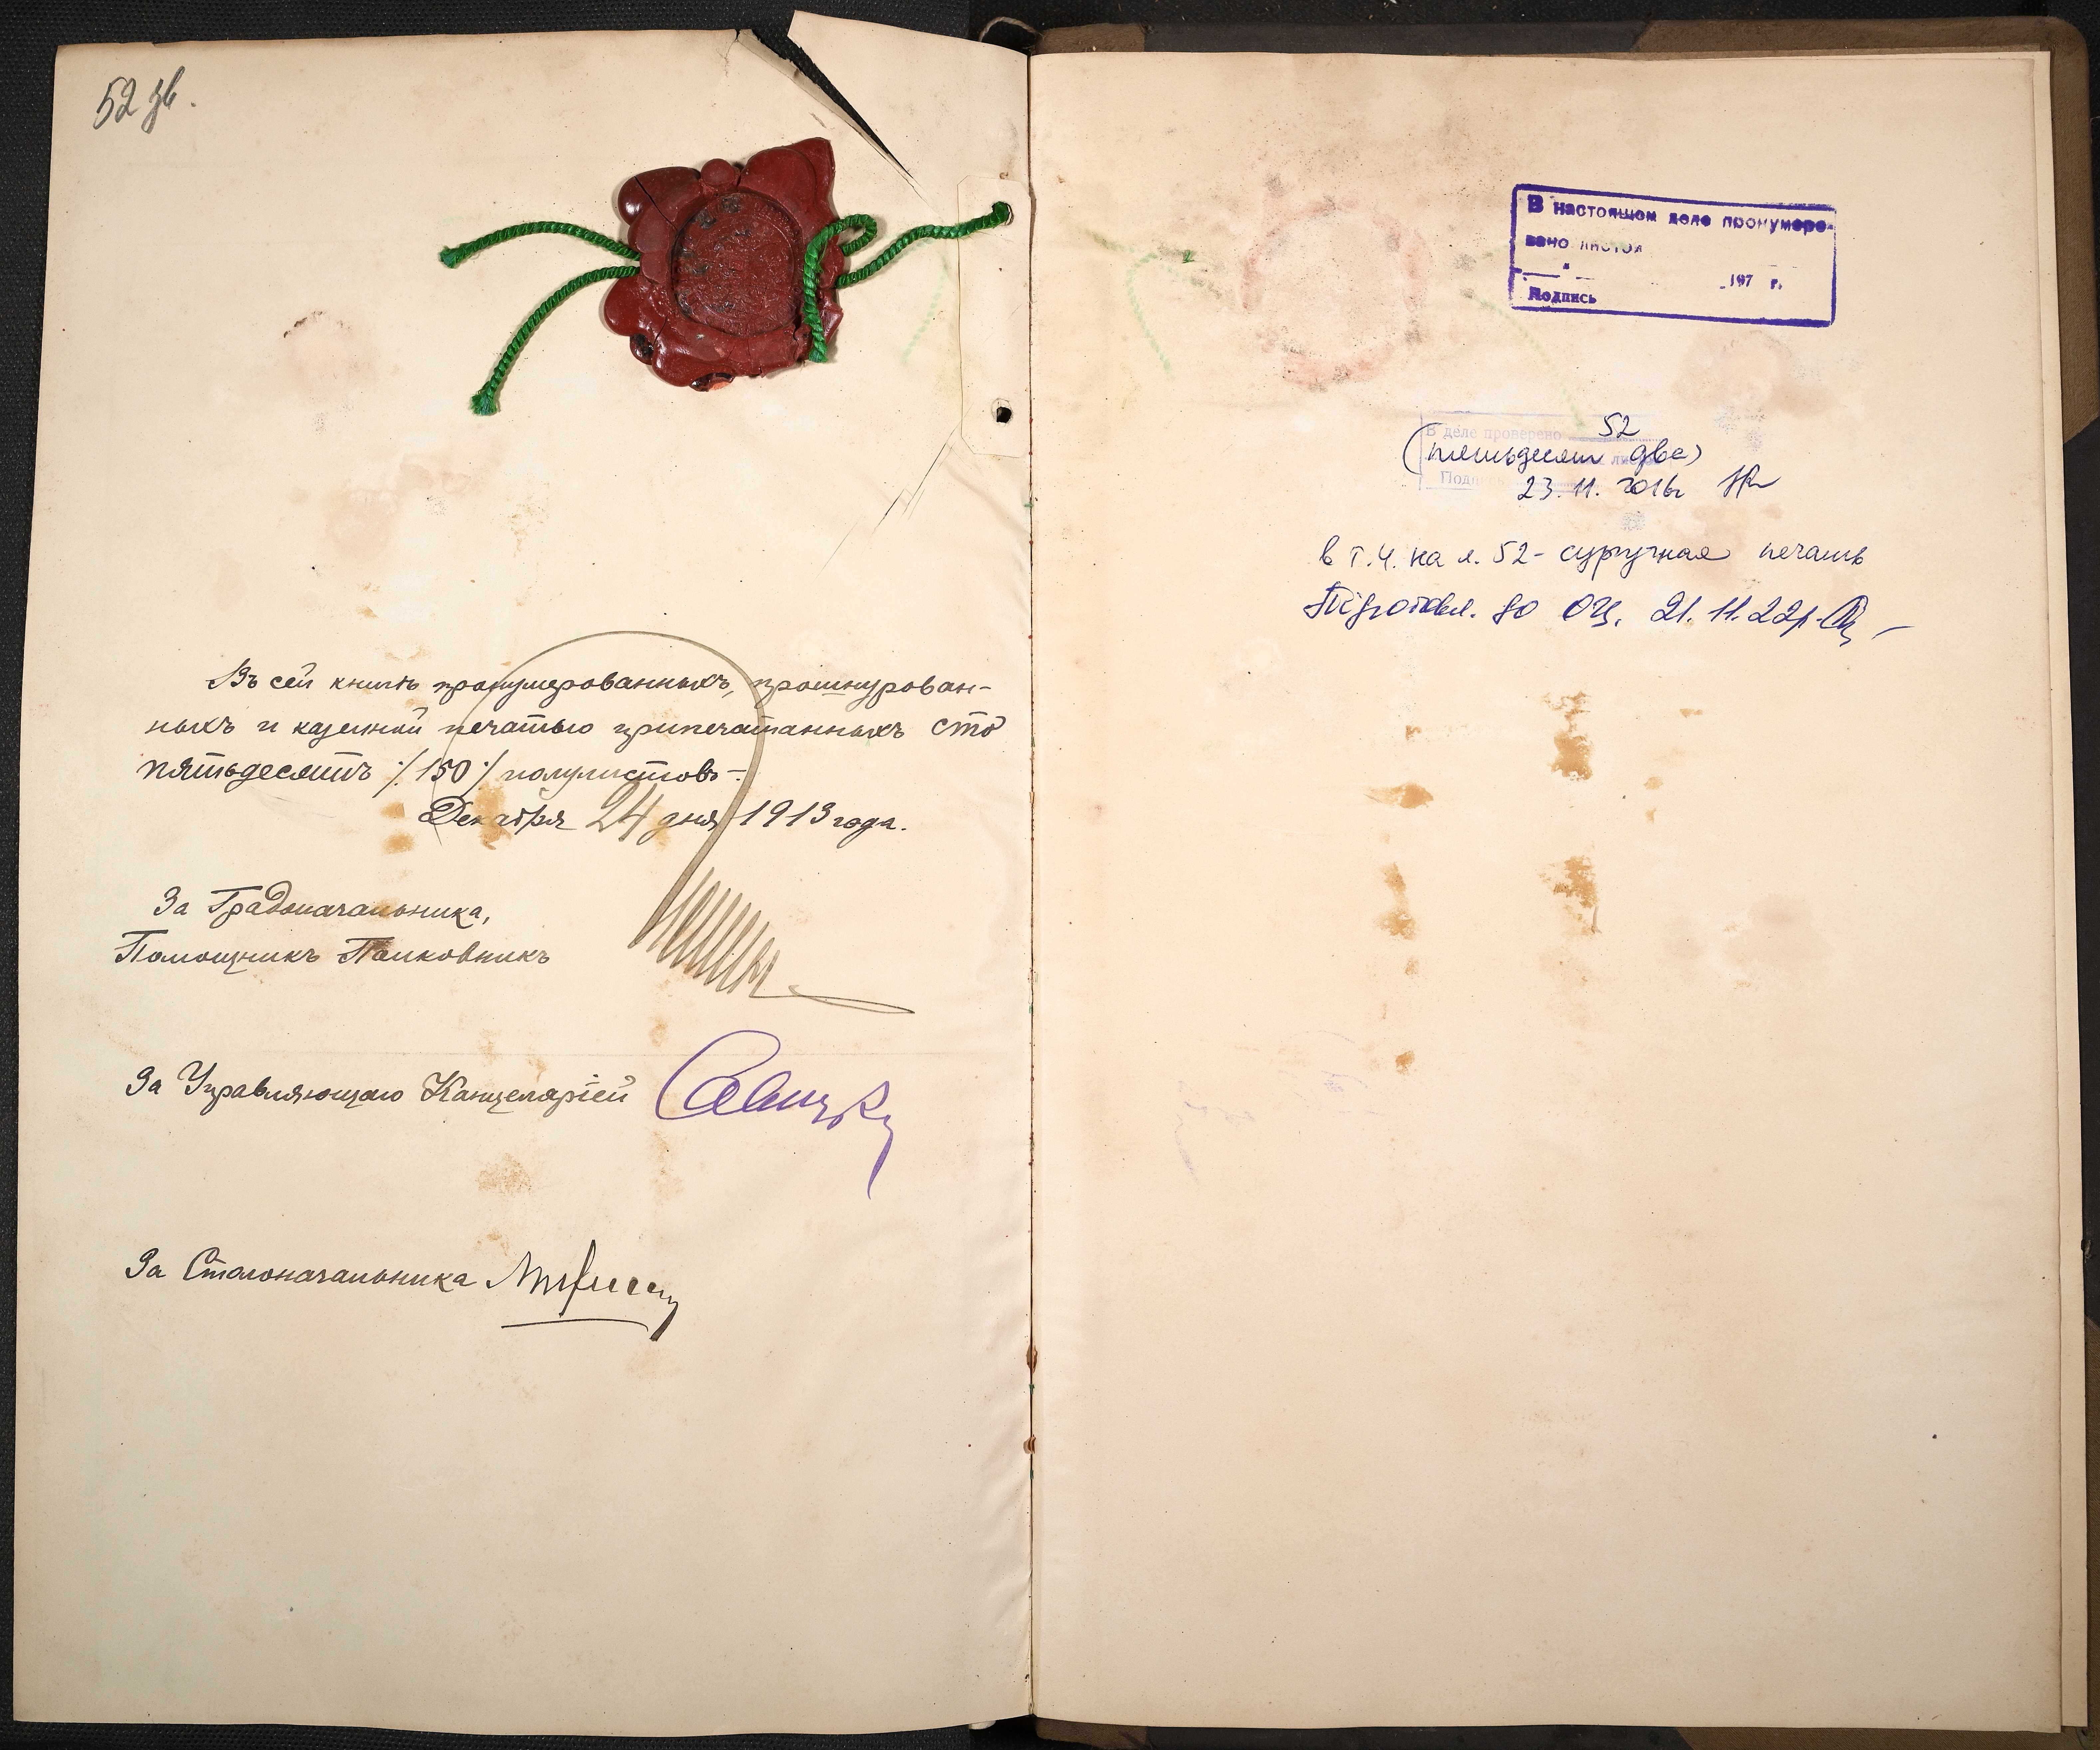 52 зв.
Въ сей книгѣ пронумерованныхъ, прошнурован-
ныхъ и казенной печатью припечатанныхъ сто
пятьдесятъ /:150:/ полулистовъ.
Декабря 24 дня 1913 года.
За Градоначальника,
Помощникъ Полковникъ
За Управляющаго Канцеляріей
За Столоначальника
В настоящем деле пронумеро-
вано листов
197 г.
Подпись
В деле проверено 52
(пятьдесят два)
Подпись
23.11.2016г
в т.ч. на л. 52 - сургучная печать
Підготовл. до ОЦ. 21.11.22р.